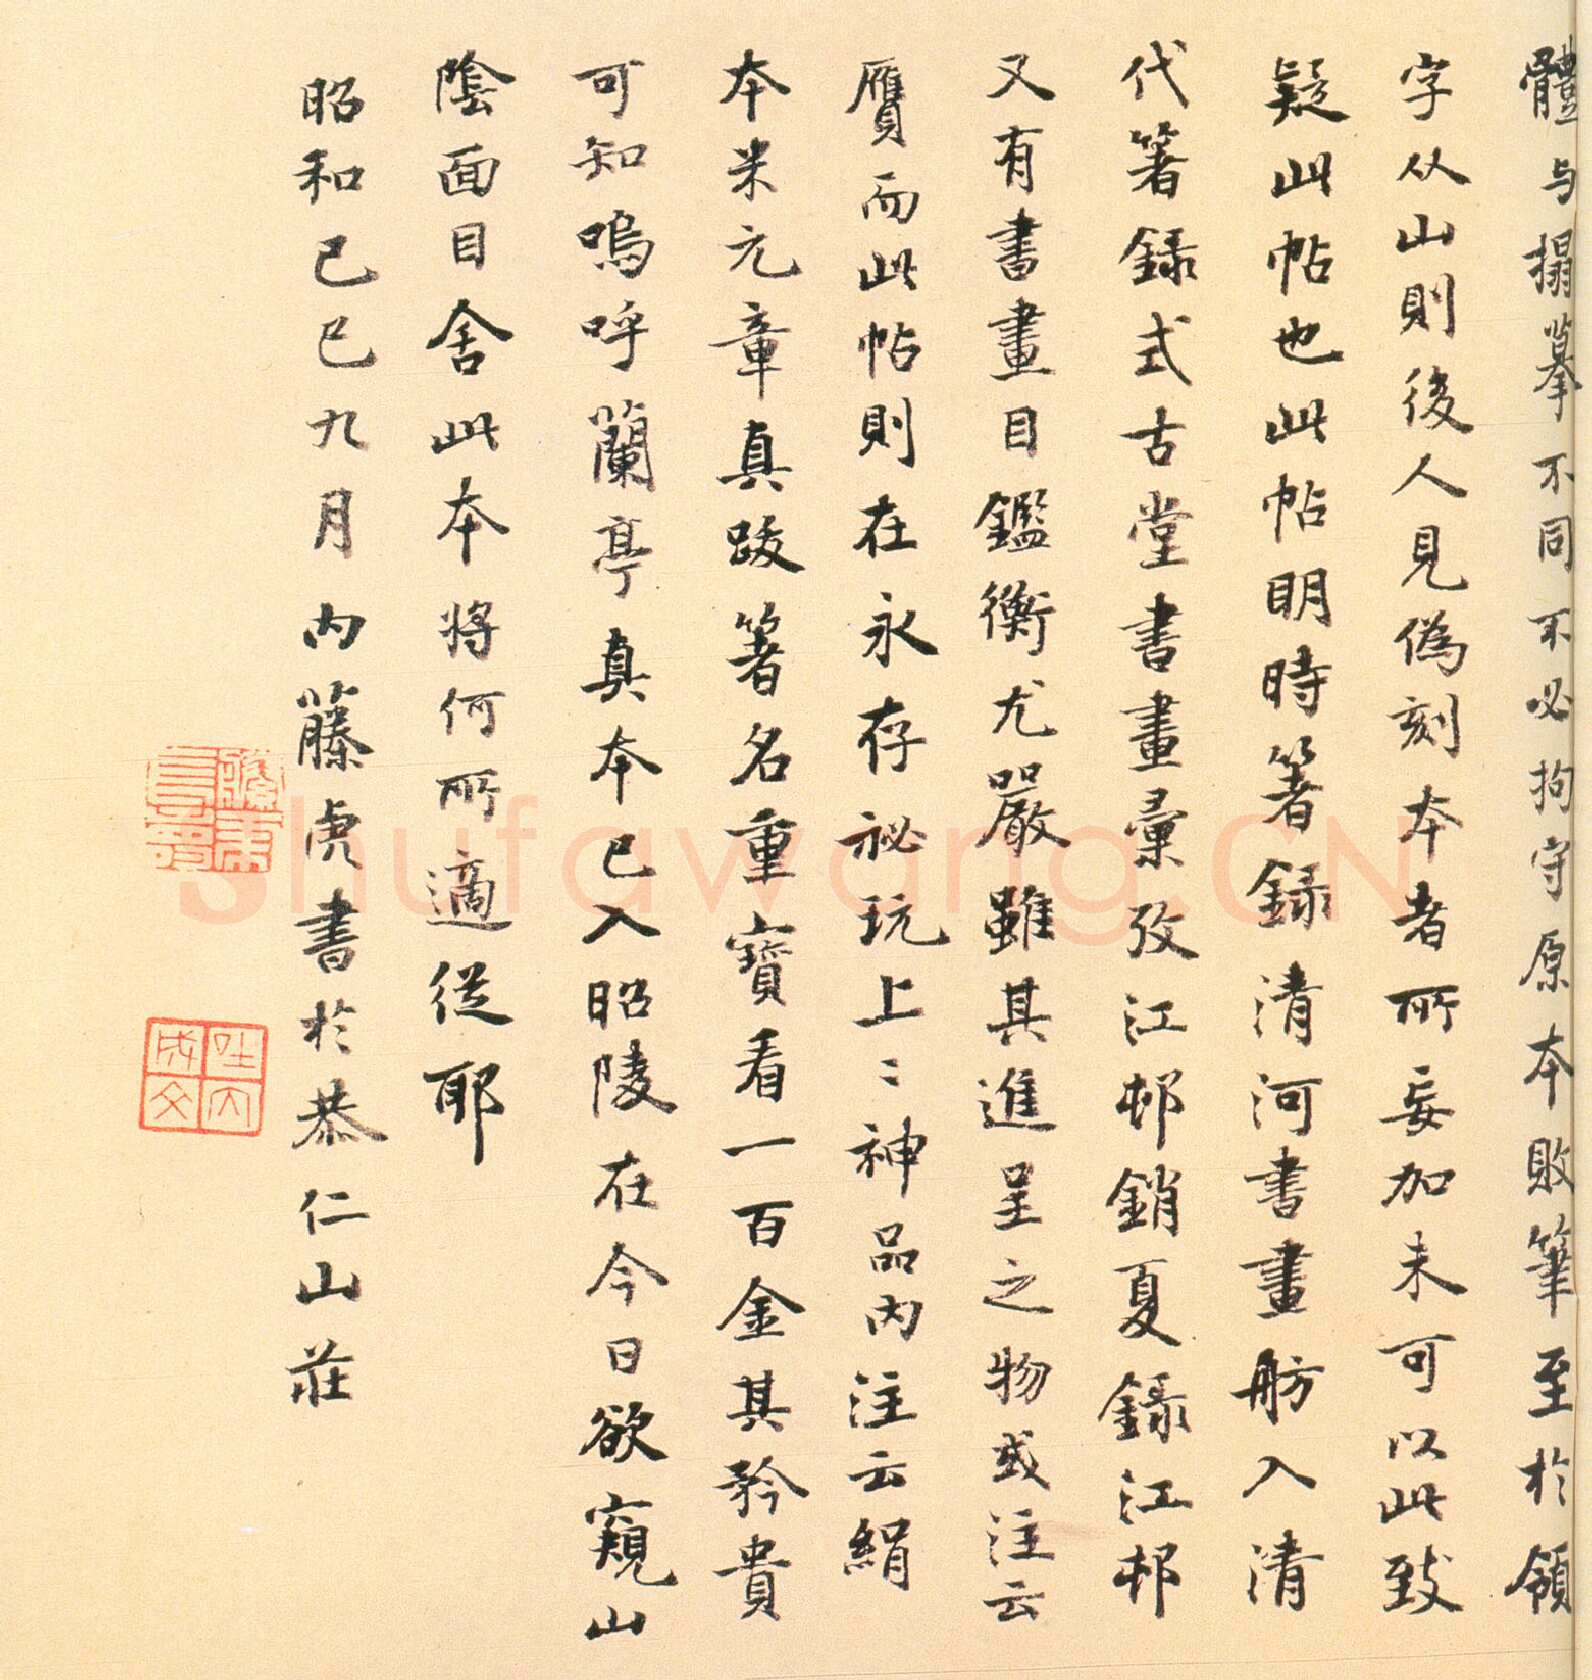 體与搨摹不同不必拘守原本敗筆至於領
字从山則後人見偽刻本者所妄加未可以此致
疑此帖也此帖明時箸錄清河書畫舫入清
代箸錄式古堂書畫彙攷江邨銷夏錄江邨
又有書畫目鑑衡尤嚴雖其進呈之物或注云
贋而此帖則在永存祕玩上上神品內注云絹
本米元章真跋箸名重寶看一百金其矜貴
可知嗚呼蘭亭真本已入昭陵在今日欲窺山
陰面目舍此本將何所適從耶
昭和己巳九月內藤虎書於恭仁山莊
shufawang.CN